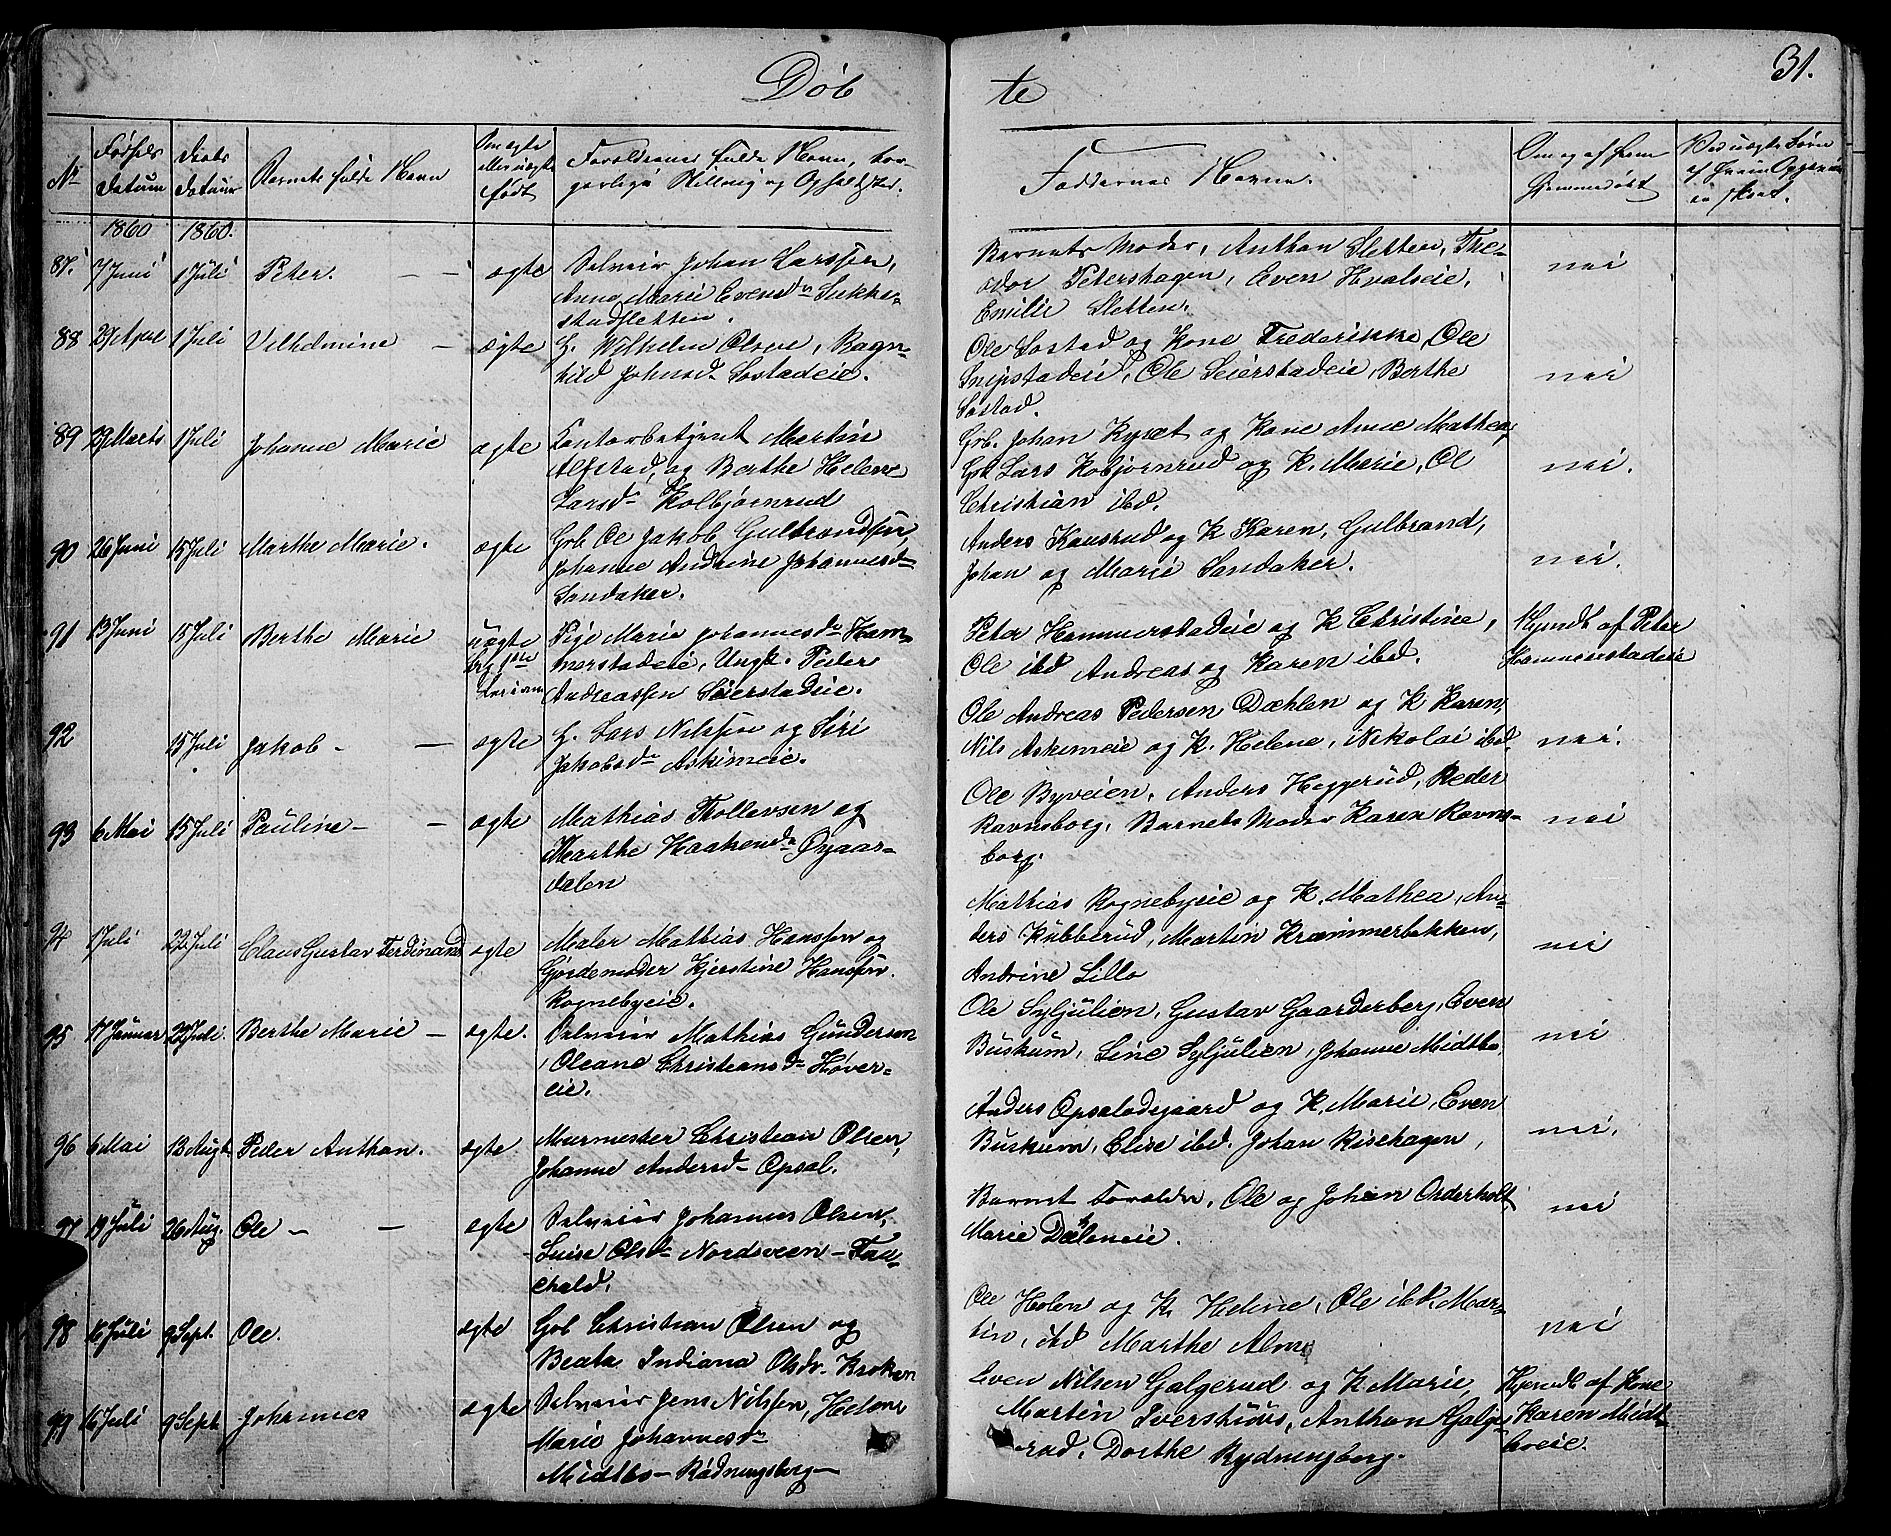 31.
Døbte
Nr
Fødsels Datum
Daabs Datum
Barnets fulde Navn
Om ægte eller uægte født
Forældrenes fulde Navn, borgerlige Stilling og Opholdsted.
Faddernes Navne.
Om og af hvem hjemmedøbt
1860 1860.
87. 7 Juni 1 Juli Peter. — — ægte Selveier Johan Larssen,
Anne Marie Evensdr Sukke-
stadsletten.
Barnets Moder, Anthon Sletten, The-
odor Petershagen, Even Hvalseie,
Emilie Sletten.
nei
88 29 April 1 Juli Vilhelmine — ægte H. Wilhelm Olsen, Ragn-
hild Johnsd. Sostadeie.
Ole Sostad og Kone Frederikke, Ole
Snipstadeie, Ole Seierstadeie, Berthe
Sostad.
nei
89 29 Marts 1 Juli Johanne Marie ægte Contorbetjent Martin
Alfstad, og Berthe Helene
Larsdr Kolbjørnrud
Gb. Johan Rysæt og Kone Anne Mathea,
Gb Lars Kolbjørnrud og K. Marie, Ole
Christian ibd.
nei.
90 26 Juni 15 Juli Marthe Marie. ægte Gb Ole Jakob Gulbrandsen,
Johanne Andrine Johannesd-
Sandaker.
Anders Kausrud og K Karen, Gulbrand,
Johan og Marie Sandaker.
nei.
91 13 Juni 15 Juli Berthe Marie uægte Pige Marie Johannesdr Ham-
merstadeie, Ungk. Peder
Andreassen Seierstadeie.
Peter Hammerstadeie og K Christine,
Ole ibd Andreas og Karen ibd.
Hjemdt af Peter
Hammerstadeie
92 15 Juli Jakob - — ægte H. Lars Nilssen og Siri
Jakobsdr Askimeie.
Ole Andreas Pedersen Dæhlen og K Karen,
Nils Askimeie og K. Helene, Nikolai ibd.
nei.
93 6 Mai 15 Juli Pauline - — ægte Mathias Thollevsen og
Marthe Haakensdr Øygaas-
dalen
Ole Byveien, Anders Heggerud, Peder
Ravnsborg, Barnets Moder Karen Ravns-
borg.
nei
94 1 Juli 22 Juli Claus Gustav Ferdinand ægte Maler Mathias Hanssen og
Gjordemoder Kjerstine Hanssen
Rognebyeie.
Mathias Rognebyeie og K. Mathea, An-
ders Kubberud, Martin Kræmmerbakken,
Andrine Lillo
nei
95 17 Januar 22 Juli. Berthe Marie — ægte. Selveier Mathias Gundersen
, Oleane Christiansdr Høver-
eie.
Ole Syljulien, Gustav Gaarderberg, Even
Buskum, Line Syljulien, Johanne Midtbo,
nei
96 6 Mai 13 Augt. Peder Anthon. ægte Murmester Christian Olsen,
Johanne Andersd- Opsal.
Anders Opsalødegaard og K. Marie, Even
Buskum, Elise ibd. Johan Risehagen,
nei.
97 19 Juli 26 Aug. Ole — — ægte Selveier Johannes Olsen,
Luise Olsdr Nordsveen - Fau-
chald.
Barnet Foreldre, Ole og Johan Osterholt
Marie Dæleneie.
nei
98 16 Juli 9 Sept. Ole. ægte Gb Christian Olsen og
Beate Indiana Olsdr. Kroken
Ole Holen og K. Heline, Ole ibd, Mar-
tin, ibd Marthe Alm
nei
99 16 Juli 9 Sept Johannes ægte Selveier Jens Nilssen, Helene
Marie Johannesdr
Midtbo - Rødningsberg -
Even Nilsen Galgerud og K Marie,
Martin Ivershuus, Anthon Galge-
rud, Dorthe Rydningberg.
Hjemdt af Kone
Karen Midt-
boeie.